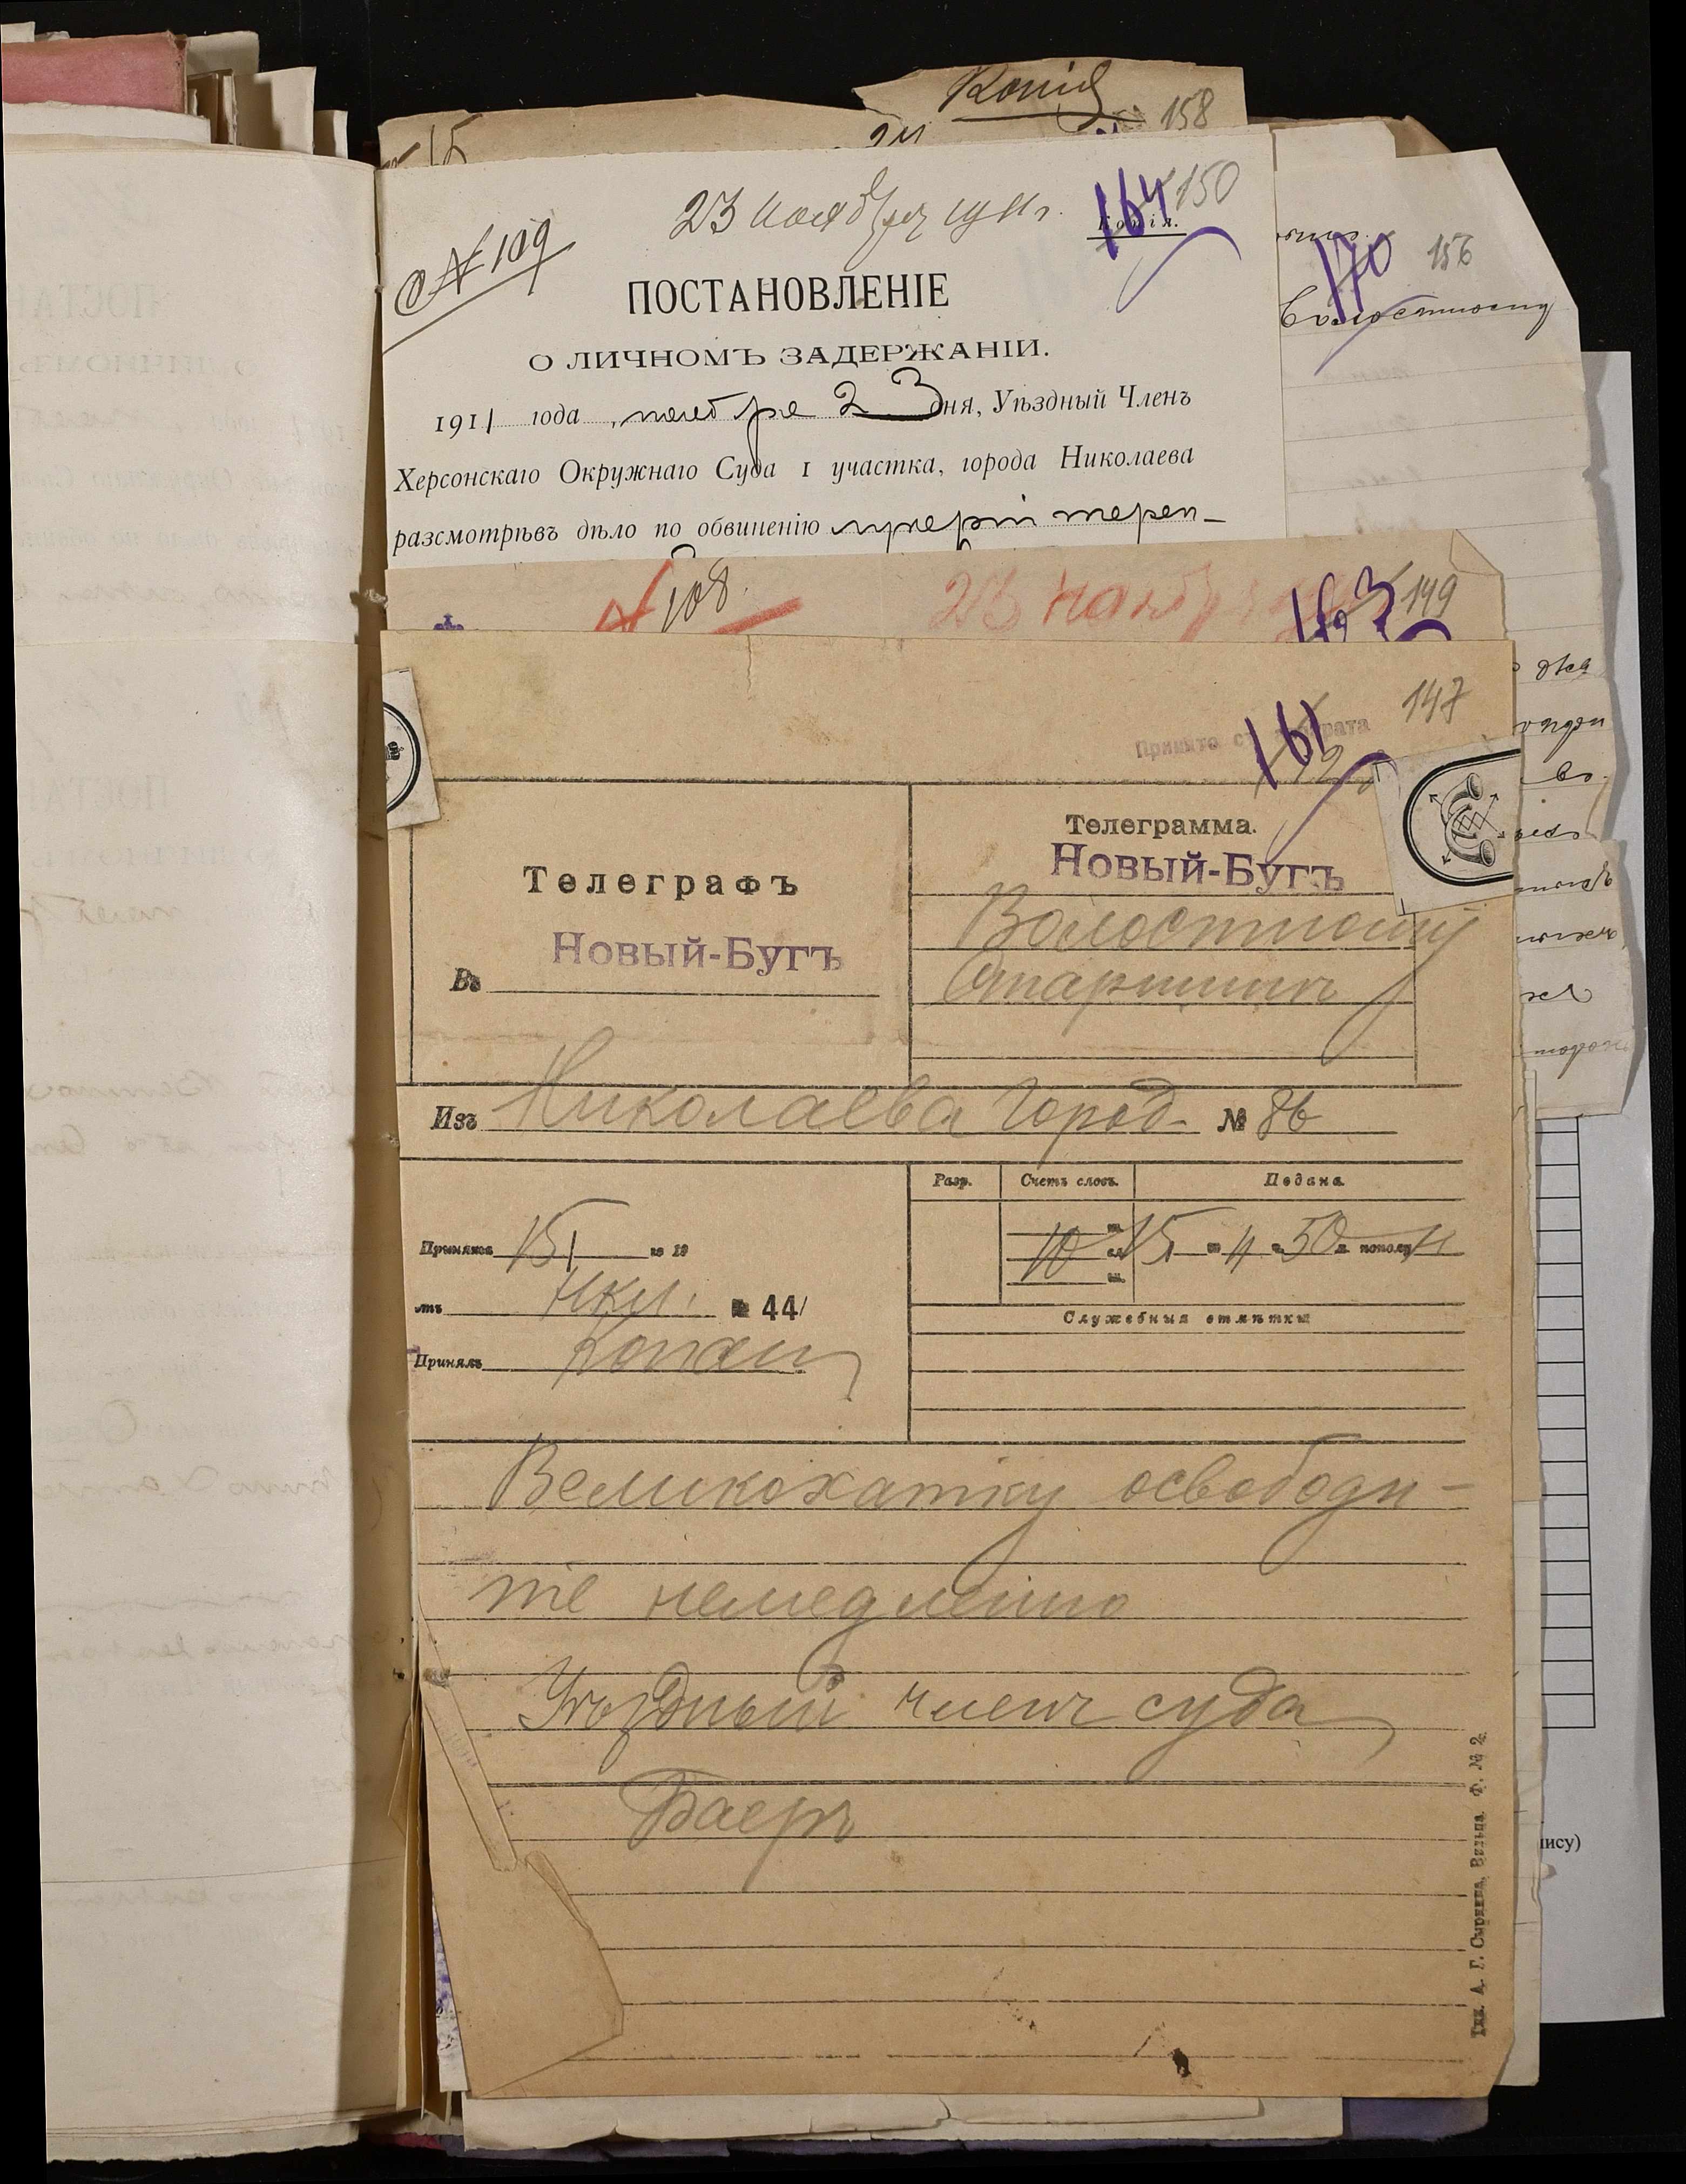 Копія
158
15
24
23 ноября 1911 г.
164 150
Копія.
№ 109
ПОСТАНОВЛЕНІЕ
О ЛИЧНОМЪ ЗАДЕРЖАНІИ.
1911 года ноября 23 дня, Уѣздный Членъ
Херсонскаго Окружнаго Суда 1 участка, города Николаева
разсмотрѣвъ дѣло по обвиненію
170 156
Волостному
№ 108.
23 нояб
163 149
147
161
Принято съ аппарата
Телеграфъ
Въ Новый-Бугъ
Телеграмма.
Новый-Бугъ
Волостному
Старшинѣ
Изъ Николаева Город № 86
Разр.
Счетъ словъ.
Подана
Принята 15/ го 19
10
15 го 11 ч. 50 м. пополу
отъ Нкл. № 44/
Служебныя отмѣтки
Принялъ
Великохатку освободи-
те немедленно
Уѣздный членъ суда
Баеръ
Тип. А. Г. Сыркина, Вильна. Ф. № 2.
пису)